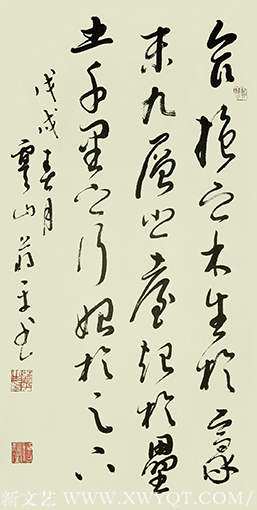 合抱之木生於毫
末九層之臺起於壘
土千里之行始於足下
戊戌春月
山
書
新文艺 - WWW.XWYQT.COM/